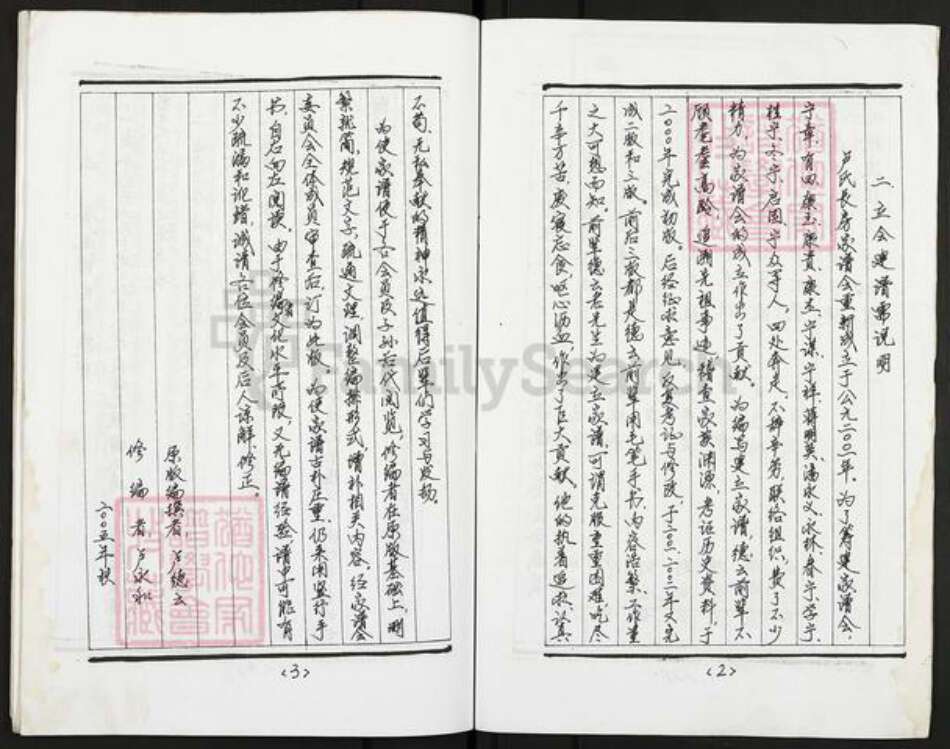 二、立会建谱需说明
卢氏长房家谱会重新成立于公元二00二年。为了筹建家谱会、
宇章、有四、康玉、康贵、康杰、宇谋、宇祥、蒋明英、汤永义、永林、春宇、学宇、
桂宇、冬宇、启国、宇众等人，四处奔走，不辞辛劳，联络组织，费了不少
精力，为家谱会的成立作出了贡献。为编写建立家谱，德云前辈不
顾耄耋高龄，追溯先祖事迹，稽查家族渊源，考证历史资料，于
二000年完成初版。后经征求意见，反复考证与修改，于二00二、二00三年又先
成二版和三版。前后三版都是德云前辈用毛笔手书，内容浩繁，工作量
之大可想而知。前辈德云老先生为建立家谱，可谓克服重重困难，吃尽
千辛万苦，废寝忘食，呕心沥血，作出了巨大贡献。他的执着追求、认真
〈2〉
不苟、无私奉献的精神永远值得后辈们学习与发扬。
为使家谱便于各会员及子孙后代阅览，修编者在原版基础上，删
繁就简，规范文字，疏通文理，调整编排形式，增补相关内容，经家谱会
委员会全体成员审查后，订为此版。为使家谱古朴庄重，仍采用竖行手
书，自右向左阅读。由于修编者文化水平有限，又无编谱经验，谱中可能有
不少疏漏和讹错，诚请各位会员及后人谅解、修正。
原版编撰者，卢德云
修编者，卢永和
二00五年秋
〈3〉
FamilySearch